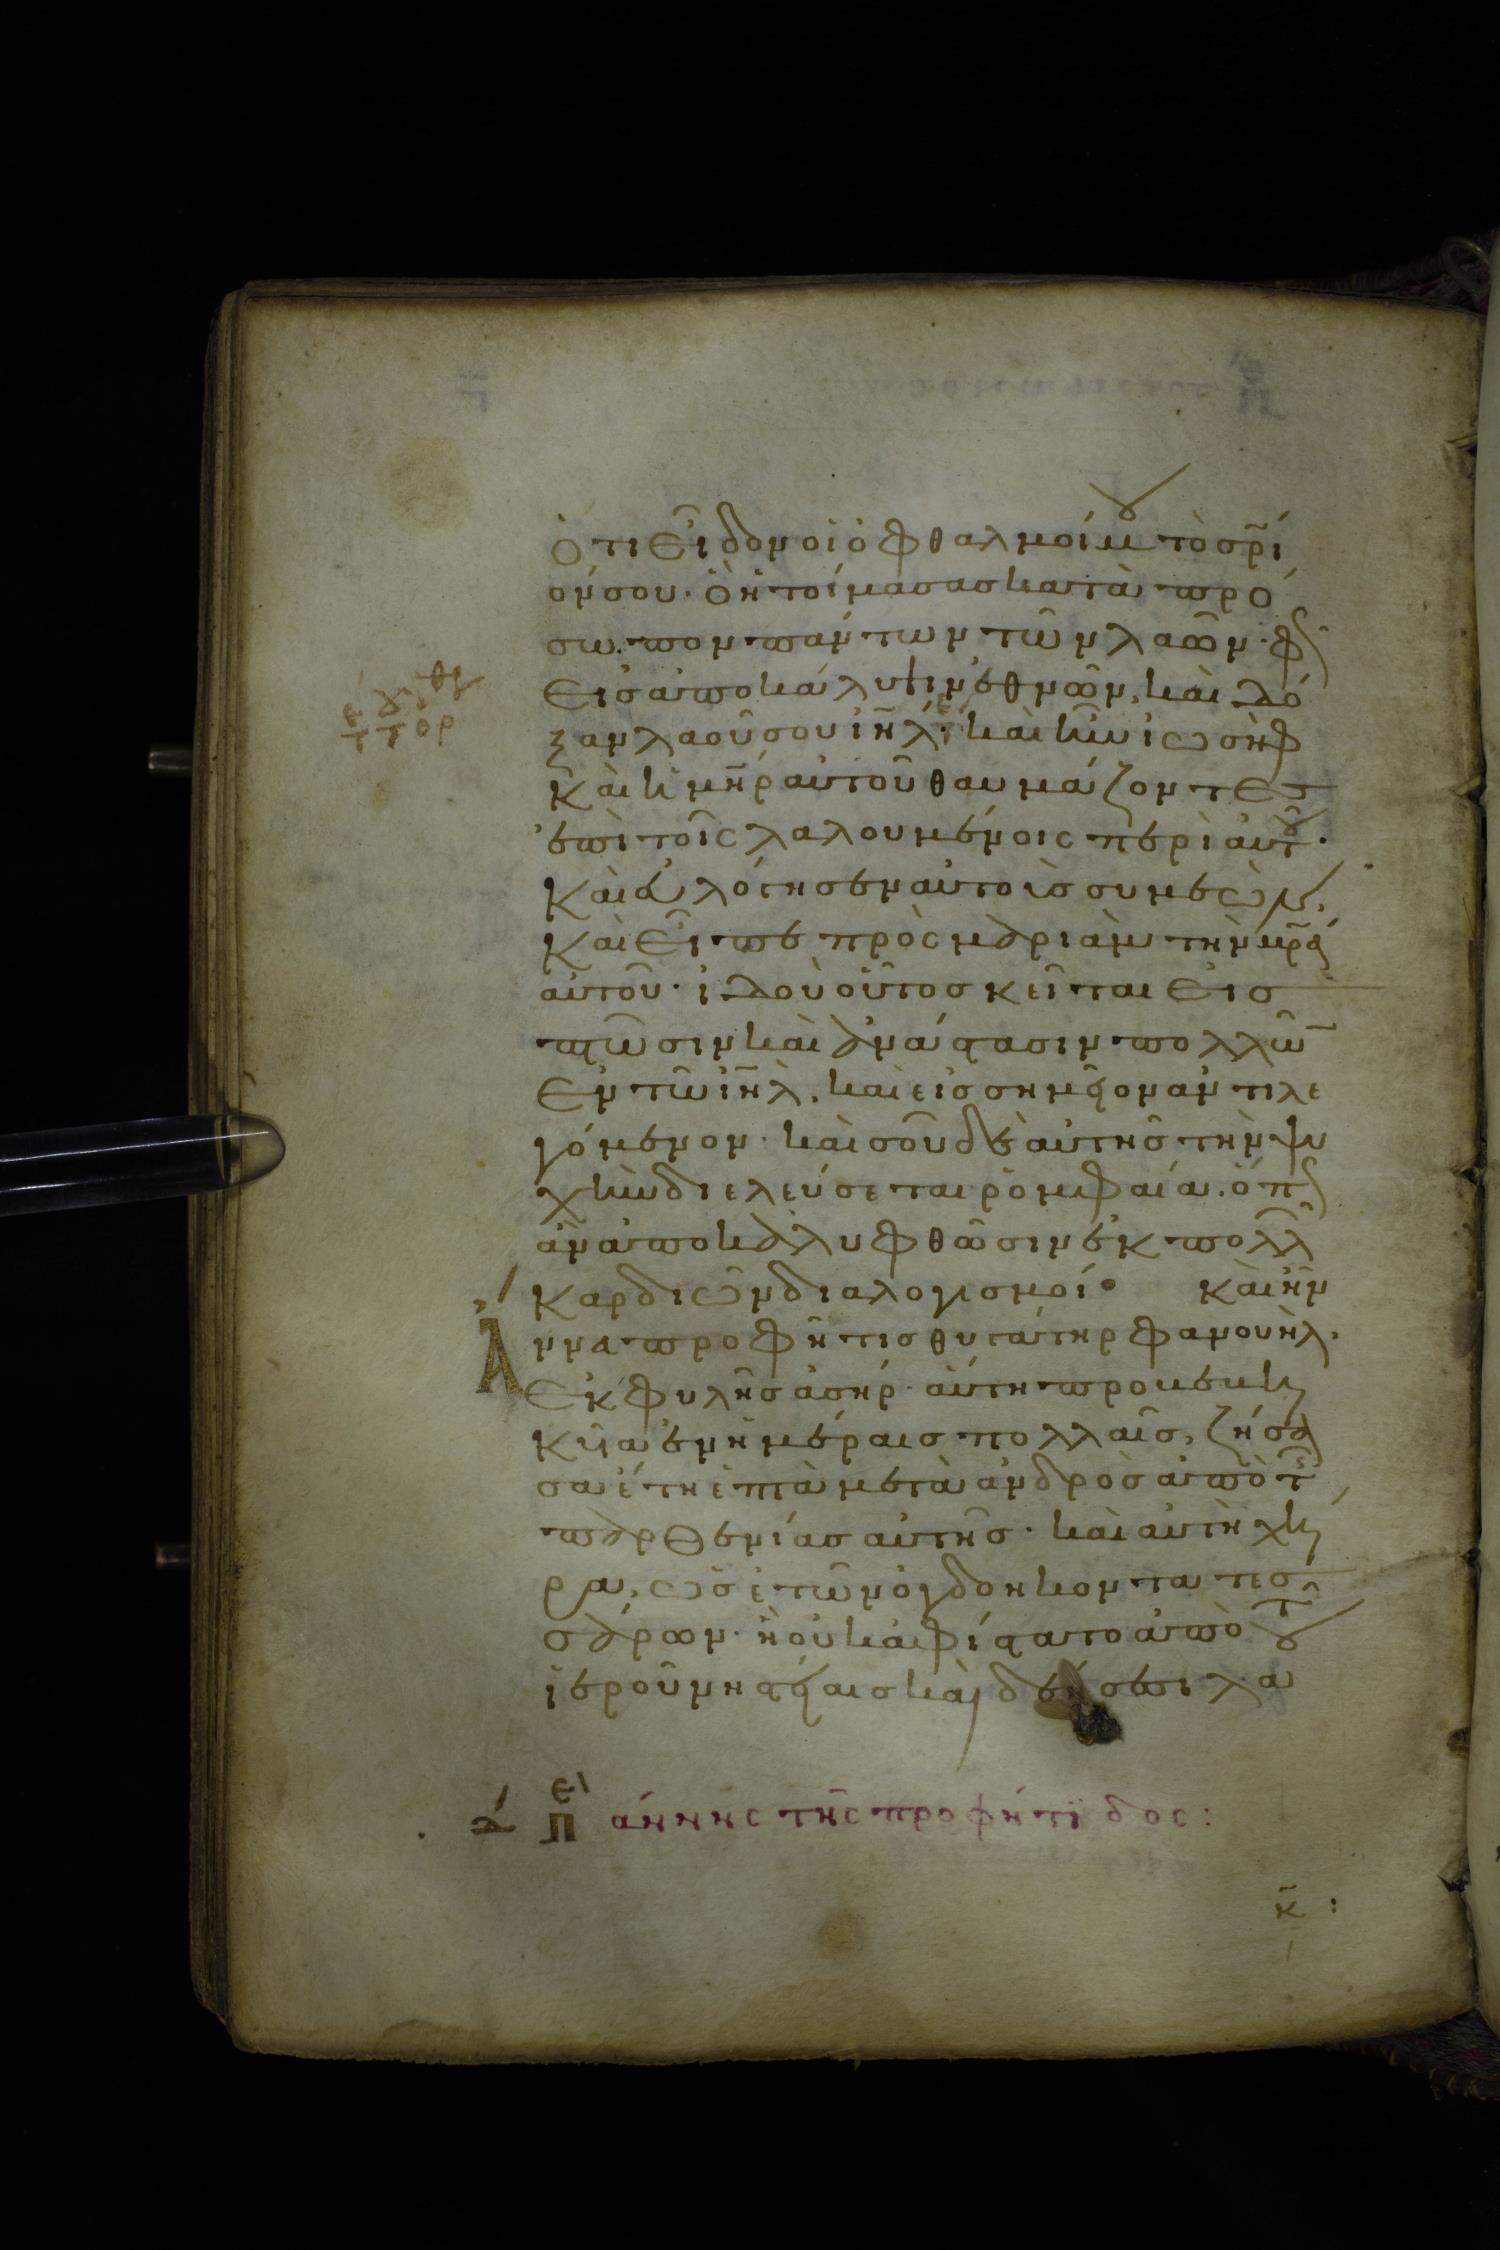 Ὅτι εἶδον οἱ ὀφθαλμοί μου τὸ σρ̃ί
όν σου· ὃ ἡτοίμασας κατὰ πρό
σωπον πάντων τῶν λαῶν· φῶς
εἰς ἀποκάλυψιν ἐθνῶν, καὶ δό
ξαν λαοῦ σου ἰη̃λ· καὶ ἦν ἰωσὴφ
καὶ ἡ μη̃ρ αὐτοῦ θαυμάζοντες
ἐπὶ τοῖς λαλουμένοις περὶ αὐτοῦ·
Καὶ εὐλόγησεν αὐτοὺς συμεὼν,
Καὶ εἶπε πρὸς μαριὰμ τὴν μρ̃α
αὐτοῦ· ἰδοὺ οὗτος κεῖται εἰς
πτῶσιν καὶ ἀνάστασιν πολλῶν
ἐν τῶ ἰη̃λ, καὶ εἰς σημεῖον ἀντιλε
γόμενον· καὶ σοῦ δὲ αὐτῆς τὴν ψυ
χὴν διελεύσεται ῥομφαία. ὅπως
ἂν ἀποκαλυφθῶσιν ἐκ πολλῶν
καρδιῶν διαλογισμοί· Καὶ ἦν
Ἄννα προφῆτις θυγάτηρ φανουὴλ·
ἐκ φυλῆς ἀσήρ· αὕτη προβεβη
κυῖα ἐν ἡμέραις πολλαῖς, ζήσα
σα ἔτη ἑπτὰ μετὰ ἀνδρὸς ἀπὸ τῆς
παρθενίας αὐτῆς· καὶ αὐτὴ χή
ρα, ὡς ἐτῶν ὀγδοήκοντα τεσ
σάρων· ἣ οὐκ ἀφίστατο ἀπὸ τοῦ
ἱεροῦ νηστείαις καὶ δεήσεσι λα
δ̅ πε̅ ἄννης τῆς προφήτιδος:
κ̅ :